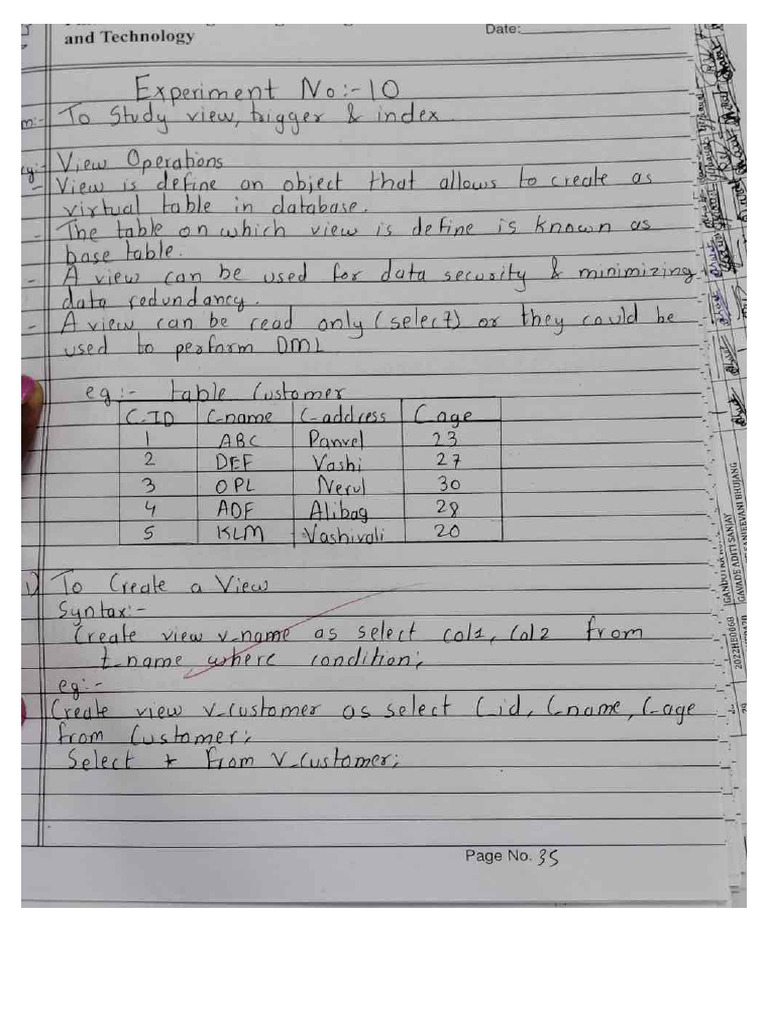 and Technology
Date:
Experiment No:-10
m:- To Study view, trigger & index
cy:- View Operations
- View is define an object that allows to create as
virtual table in database.
- The table on which view is define is known as
base table.
- A view can be used for data security & minimizing
data redundancy.
- A view can be read only (select) or they could be
used to perform DML
eg:- table Customer
C-ID C-name C-address C age
1 ABC Panvel 23
2 DEF Vashi 27
3 OPL Nerul 30
4 ADF Alibag 28
5 KLM Vashivali 20
1) To Create a View
Syntax:-
Create view v-name as select col1, Col2 from
t-name where condition;
eg:-
Create view v-Customer as select C-id, C-name, C-age
from Customer;
Select * from v-Customer;
Page No. 35
GAVADE ADITI SANJAY
SANJEEVANI BHUJANG
2022HE0068